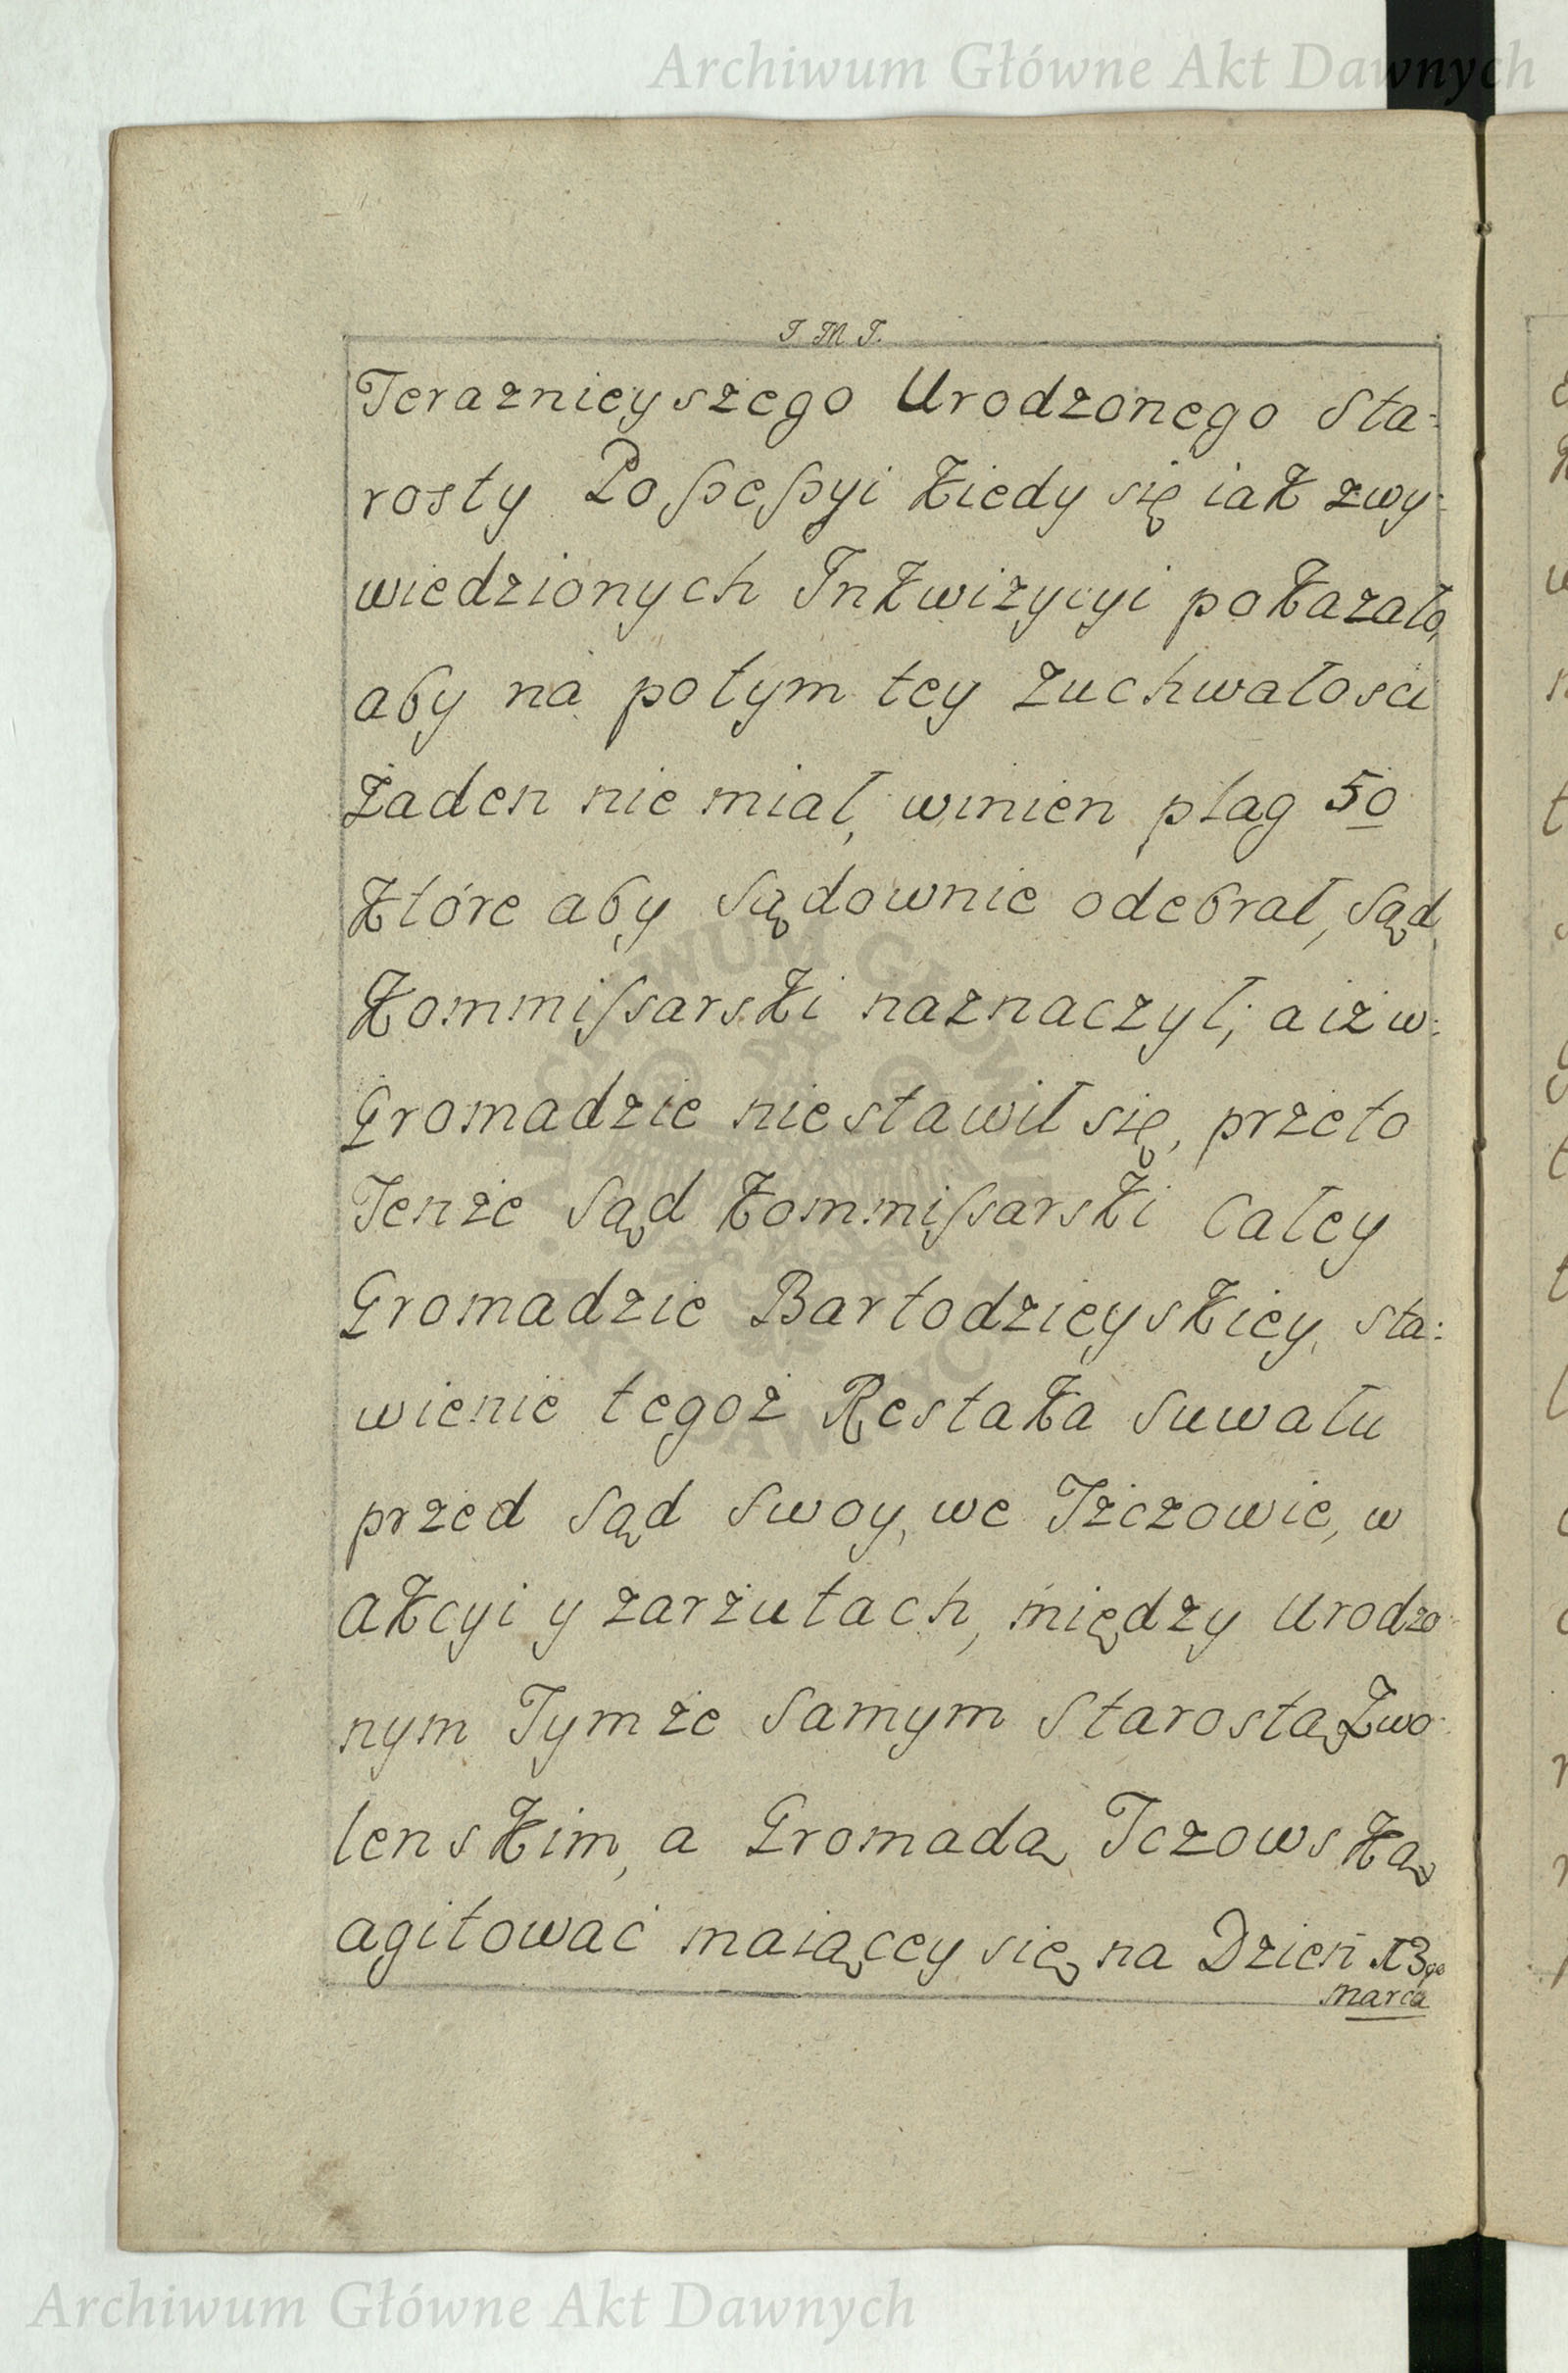 Archiwum Główne Akt Dawnych
J. M. J.
Teraznieyszego Urodzonego Sta-
rosty Possessyi kiedy się iak zwy-
wiedzionych Inkwizycyi pokazało,
aby na potym tey zuchwałosci
żaden nie miał, winien plag 50
które aby Sądownie odebrał, Sąd
Kommissarski naznaczył; a iż w:
Gromadzie nie stawił się, przeto
Tenże Sąd Kommissarski Całey
Gromadzie Bartodzieyskiey, sta:
wienie tegoż Restaka Suwału
przed Sąd Swoy, we Tżczowie, w
Akcyi y zarzutach, między Urodzo-
nym Tymże Samym Starostą Zwo-
lenskim, a Gromadą Tczowską
agitować maiącey się na Dzień 13go
Marca
ARCHIWUM GŁÓWNE AKT DAWNYCH
Archiwum Główne Akt Dawnych